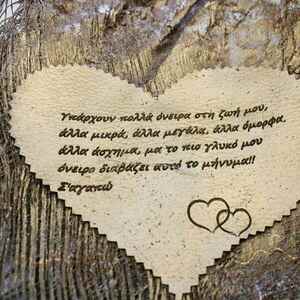 Υπάρχουν πολλά όνειρα στη ζωή μου,
άλλα μικρά, άλλα μεγάλα, άλλα όμορφα,
άλλα άσχημα, μα το πιο γλυκό μου
όνειρο διαβάζει αυτό το μήνυμα!!
Σ'αγαπώ